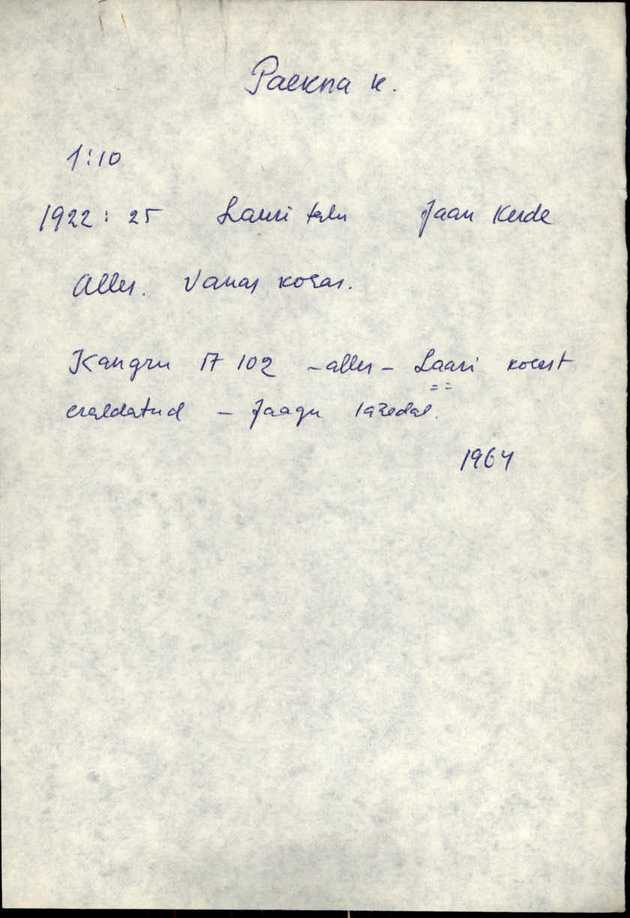 Paekna k.
1:10
1922: 25 Lauri talu Jaan Kerde
Alles. Vanas kohas.
Kangru A 102 – alles – Laari kohast
eraldatud – Jaagu lähedal.
1964